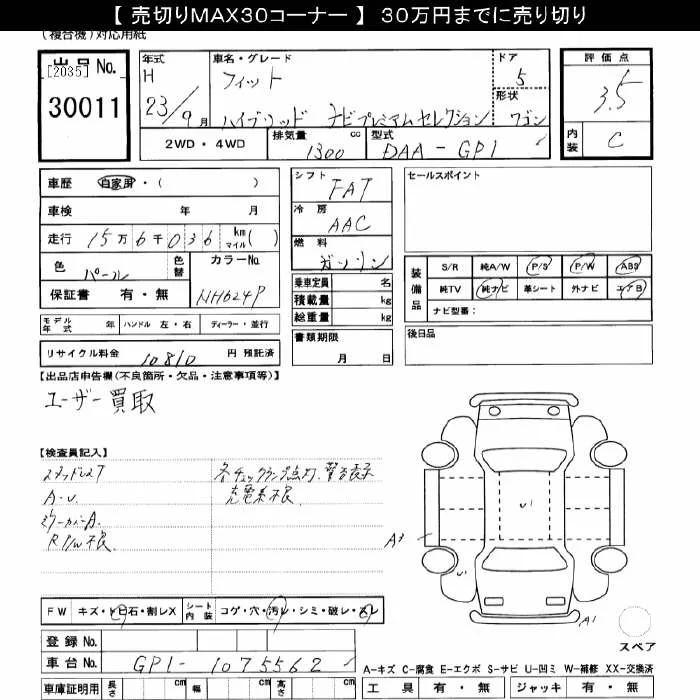 【 売切りMAX30コーナー 】 30万円までに売り切り
(複合機)対応用紙
出品 No.
[2035]
30011
年式
H
23/9月
車名・グレード
フィット
ハイブリッド ナビプレミアムセレクション
ドア
5
形状
ワゴン
2WD・4WD
排気量
1300
cc
型式
DAA-GP1
評価点
3.5
内装
C
車歴 自家用・( )
車検 年 月
走行 15万6千036 km マイル( )
色 パール
色替
カラーNo.
NH624P
保証書 有・無
モデル年式 年 ハンドル 左・右 ディーラー・並行
リサイクル料金 10810 円 預託済
シフト
FAT
冷房
AAC
燃料
ガソリン
乗車定員 名
積載量 kg
総重量 kg
書類期限
月 日
セールスポイント
装備品
S/R 純A/W P/S P/W ABS
純TV 純ナビ 革シート 外ナビ エアB
ナビ型番:
後日品
【出品店申告欄(不良箇所・欠品・注意事項等)】
ユーザー買取
【検査員記入】
スタッドレス7
各チェックランプ点灯、警告表示
A・U
充電系不良
ミラーカバーA.
R P/W不良.
A3
U1
U1
A1
FW キズ・トビ石・割レX
シート内装 コゲ・穴・汚レ・シミ・破レ・スレ
登録 No.
車台 No. GP1-1075562
スペア
A-キズ C-腐食 E-エクボ S-サビ U-凹ミ W-補修 XX-交換済
車庫証明用 長さ cm 幅 cm 高さ cm
工具 有・無 ジャッキ 有・無